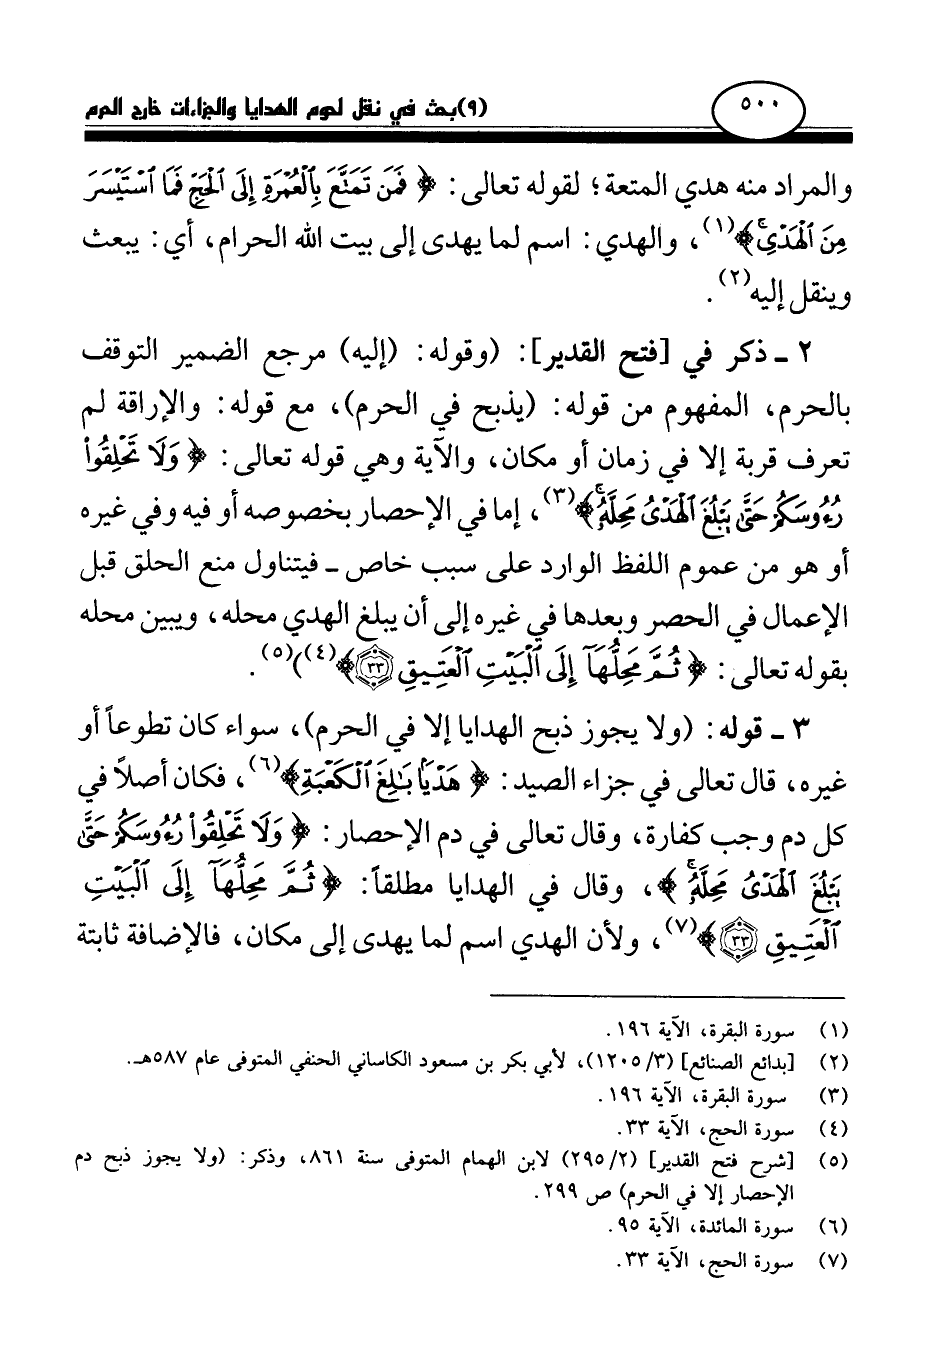 (٩) بحث في نقل لحوم الهدايا والجزاءات خارج الحرم
٥٠٠
والمراد منه هدي المتعة؛ لقوله تعالى: ﴿ فَمَن تَمَتَّعَ بِٱلْعُمْرَةِ إِلَى ٱلْحَجِّ فَمَا ٱسْتَيْسَرَ
مِنَ ٱلْهَدْىِۚ﴾(١)، والهدي: اسم لما يهدى إلى بيت الله الحرام، أي: يبعث
وينقل إليه(٢).
٢ ـ ذكر في [فتح القدير]: (وقوله: (إليه) مرجع الضمير التوقف
بالحرم، المفهوم من قوله: (يذبح في الحرم)، مع قوله: والإراقة لم
تعرف قربة إلا في زمان أو مكان، والآية وهي قوله تعالى: ﴿ وَلَا تَحْلِقُوا۟
رُءُوسَكُمْ حَتَّىٰ يَبْلُغَ ٱلْهَدْىُ مَحِلَّهُۥۚ﴾(٣)، إما في الإحصار بخصوصه أو فيه وفي غيره
أو هو من عموم اللفظ الوارد على سبب خاص ـ فيتناول منع الحلق قبل
الإعمال في الحصر وبعدها في غيره إلى أن يبلغ الهدي محله، ويبين محله
بقوله تعالى: ﴿ ثُمَّ مَحِلُّهَآ إِلَى ٱلْبَيْتِ ٱلْعَتِيقِ ٣٣﴾(٤))(٥).
٣ ـ قوله: (ولا يجوز ذبح الهدايا إلا في الحرم)، سواء كان تطوعاً أو
غيره، قال تعالى في جزاء الصيد: ﴿ هَدْيًۢا بَٰلِغَ ٱلْكَعْبَةِ﴾(٦)، فكان أصلاً في
كل دم وجب كفارة، وقال تعالى في دم الإحصار: ﴿ وَلَا تَحْلِقُوا۟ رُءُوسَكُمْ حَتَّىٰ
يَبْلُغَ ٱلْهَدْىُ مَحِلَّهُۥۚ ﴾، وقال في الهدايا مطلقاً: ﴿ ثُمَّ مَحِلُّهَآ إِلَى ٱلْبَيْتِ
ٱلْعَتِيقِ ٣٣﴾(٧)، ولأن الهدي اسم لما يهدى إلى مكان، فالإضافة ثابتة
(١) سورة البقرة، الآية ١٩٦.
(٢) [بدائع الصنائع] (٣/ ١٢٠٥)، لأبي بكر بن مسعود الكاساني الحنفي المتوفى عام ٥٨٧هـ.
(٣) سورة البقرة، الآية ١٩٦.
(٤) سورة الحج، الآية ٣٣.
(٥) [شرح فتح القدير] (٢/ ٢٩٥) لابن الهمام المتوفى سنة ٨٦١، وذكر: (ولا يجوز ذبح دم
الإحصار إلا في الحرم) ص ٢٩٩.
(٦) سورة المائدة، الآية ٩٥.
(٧) سورة الحج، الآية ٣٣.